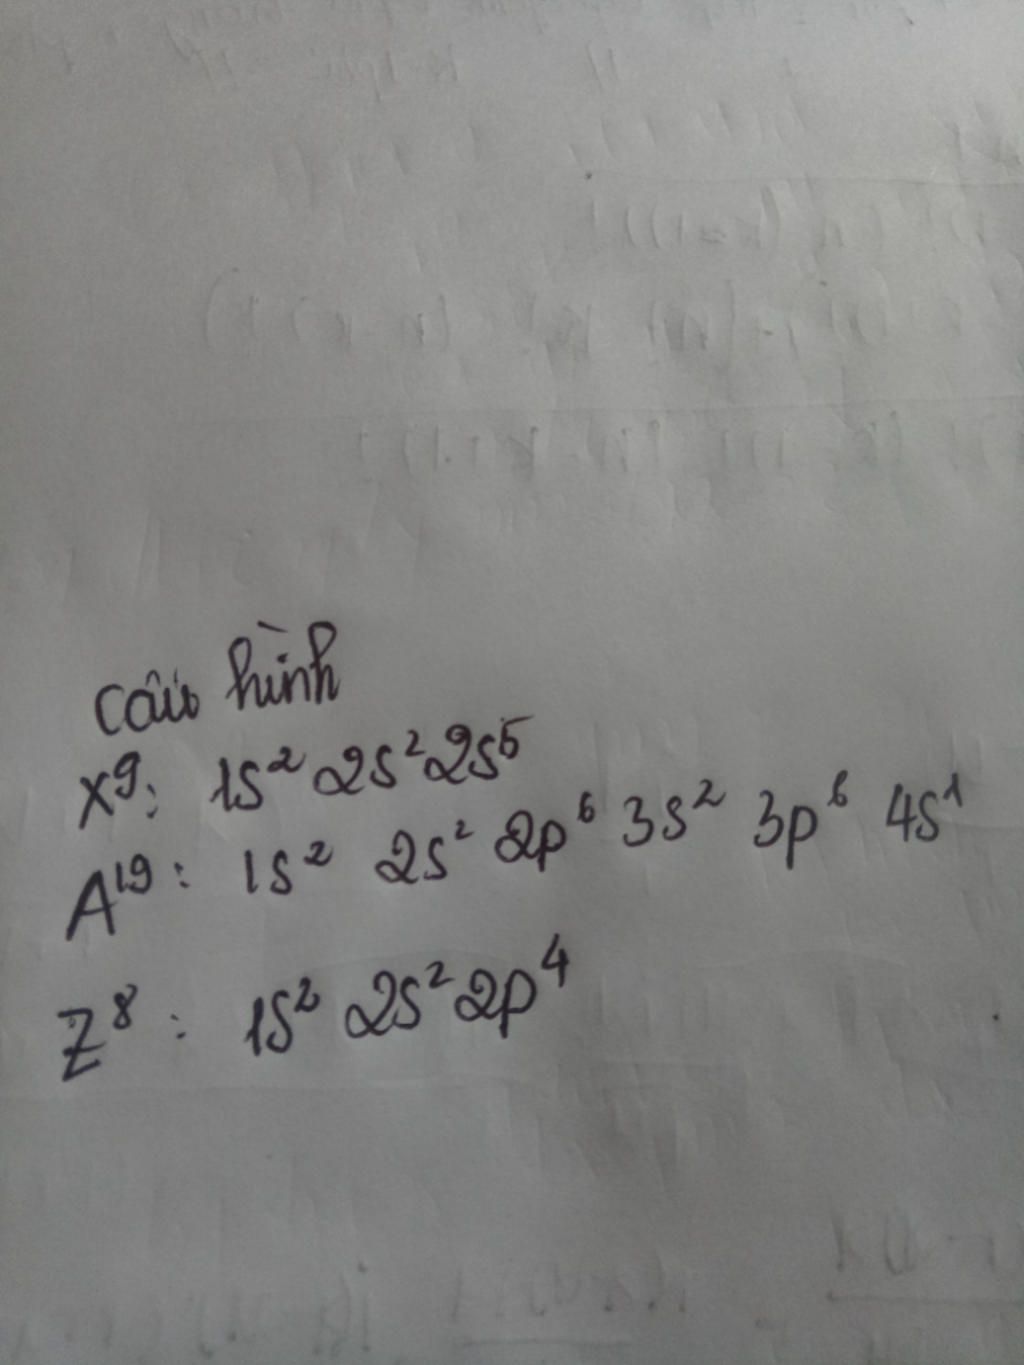 cấu hình
X⁹: 1s² 2s² 2s⁵
A¹⁹: 1s² 2s² 2p⁶ 3s² 3p⁶ 4s¹
Z⁸: 1s² 2s² 2p⁴